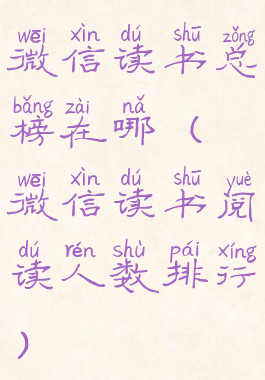 wēi xìn dú shū zǒng
微信读书总
bǎng zài nǎ
榜在哪（
wēi xìn dú shū yuè
微信读书阅
dú rén shù pái xíng
读人数排行
）